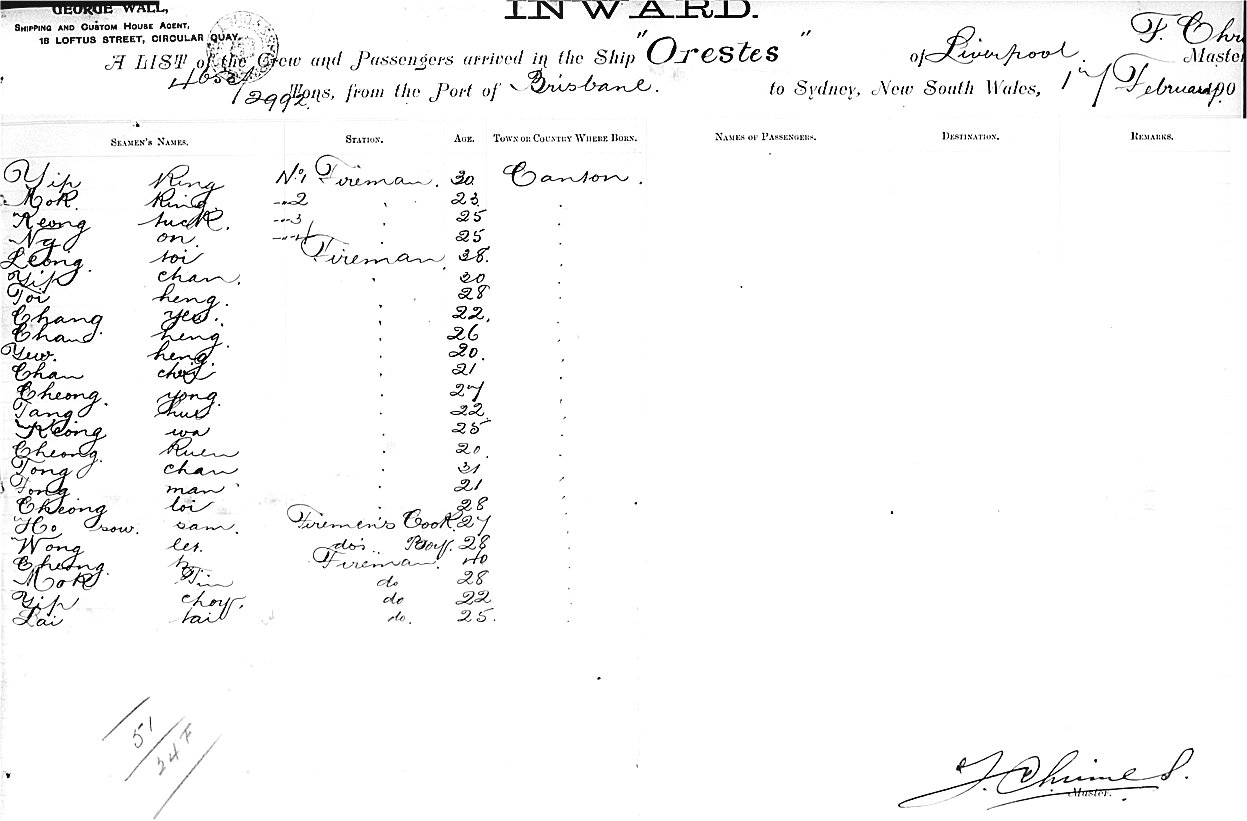 GEORGE WALL,
SHIPPING AND CUSTOM HOUSE AGENT,
18 LOFTUS STREET, CIRCULAR QUAY.
INWARD.
F. Chi
Master
A LIST of the Crew and Passengers arrived in the Ship "Orestes" of Liverpool.
Tons, from the Port of Brisbane. to Sydney, New South Wales, 1st February 190
2992
SEAMEN'S NAMES. STATION. AGE. TOWN OR COUNTRY WHERE BORN. NAMES OF PASSENGERS. DESTINATION. REMARKS.
Yip King No 1 Fireman. 30 Canton.
Mok King. --2 " 23 "
Keong tuck. --3 " 25 "
Ng on. --4 " 25 "
Leong toi Fireman 38. "
Yip chan. " 30 "
Toi heng. " 28 "
Chang yes. " 22. "
Chan heng. " 26 "
Yew. heng " 20. "
Chan " 21 "
Cheong. yong. " 27 "
Tang " 22 "
Keong wa " 25 "
Cheong. Kuen " 20 "
Tong chan " 31 "
Tong man " 21 "
Cheong toi " 28 "
Ho sow. sam. Firemen's Cook. 27 "
Wong do's Boy. 28 "
Cheong Fireman. 40 "
Mok Tim do 28 "
Yip choy. do 22 "
Lai tai do. 25. "
51
24 F
Master.